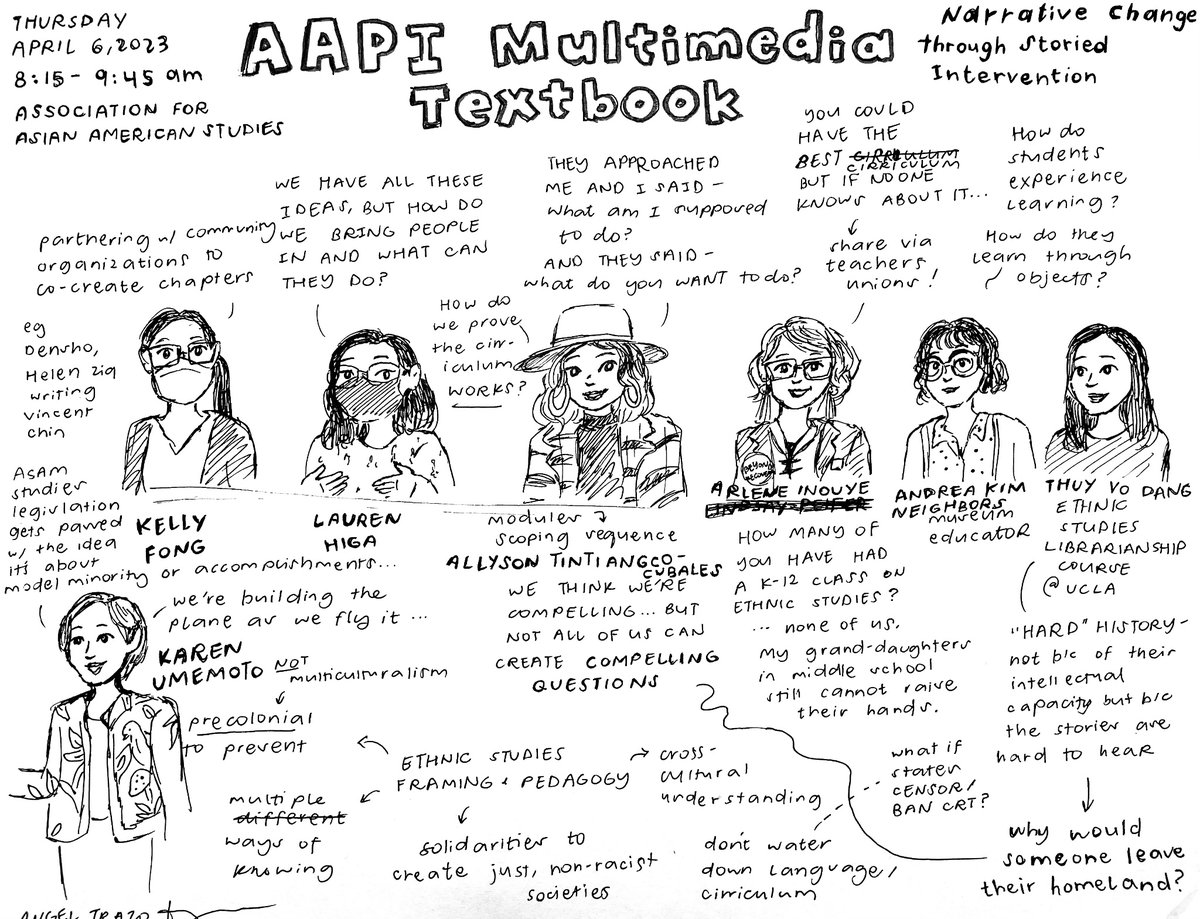 THURSDAY
APRIL 6, 2023
8:15 - 9:45 am
ASSOCIATION FOR
ASIAN AMERICAN STUDIES
AAPI Multimedia
Textbook
Narrative Change
through Storied
Intervention
partnering w/ community
organizations to
co-create chapters
eg
Densho,
Helen Zia
writing
vincent
chin
WE HAVE ALL THESE
IDEAS, BUT HOW DO
WE BRING PEOPLE
IN AND WHAT CAN
THEY DO?
How do
we prove
the cirr-
iculum
WORKS?
THEY APPROACHED
ME AND I SAID -
what am I supposed
to do?
AND THEY SAID -
what do you WANT to do?
YOU COULD
HAVE THE
BEST CIRRULUM
CIRRICULUM
BUT IF NO ONE
KNOWS ABOUT IT...
share via
teachers
unions!
How do
students
experience
learning?
How do they
learn through
objects?
Asam
studies
legislation
gets passed
w/ the idea
it's about
model minority or accomplishments...
KELLY
FONG
LAUREN
HIGA
modules
scoping sequence
ALLYSON TINTIANGCO-
CUBALES
WE THINK WE'RE
COMPELLING... BUT
NOT ALL OF US CAN
CREATE COMPELLING
QUESTIONS
ARLENE INOUYE
HOW MANY OF
YOU HAVE HAD
A K-12 CLASS ON
ETHNIC STUDIES?
... none of us.
My grand-daughters
in middle school
still cannot raise
their hands.
ANDREA KIM
NEIGHBORS
museum
educator
THUY VO DANG
ETHNIC
STUDIES
LIBRARIANSHIP
COURSE
@UCLA
"HARD" HISTORY-
not b/c of their
intellectual
capacity but b/c
the stories are
hard to hear
why would
someone leave
their homeland?
we're building the
plane as we fly it...
KAREN
UMEMOTO
NOT
multiculturalism
precolonial
to prevent
ETHNIC STUDIES
FRAMING + PEDAGOGY
multiple
different
ways of
knowing
solidarities to
create just, non-racist
societies
cross-
cultural
understanding
what if
states
CENSOR/
BAN CRT?
don't water
down language/
cirriculum
ANGEL TRAZO